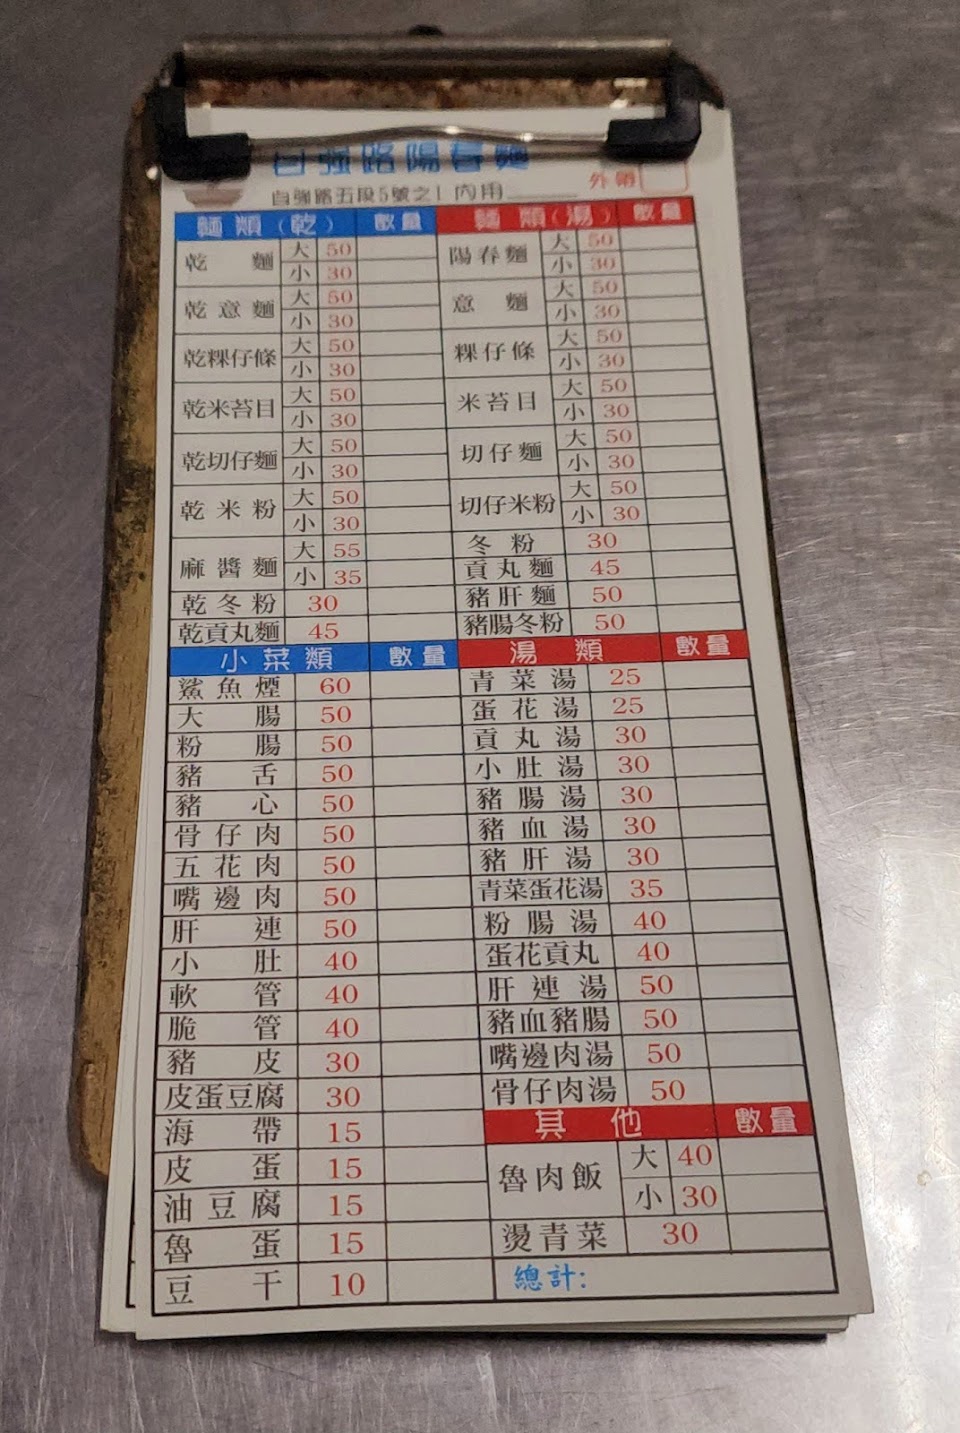 自強路陽春麵
自強路五段5號之1 內用 外帶
麵類（乾） 數量
乾麵 大 50
小 30
乾意麵 大 50
小 30
乾粿仔條 大 50
小 30
乾米苔目 大 50
小 30
乾切仔麵 大 50
小 30
乾米粉 大 50
小 30
麻醬麵 大 55
小 35
乾冬粉 30
乾貢丸麵 45
小菜類 數量
鯊魚煙 60
大腸 50
粉腸 50
豬舌 50
豬心 50
骨仔肉 50
五花肉 50
嘴邊肉 50
肝連 50
小肚 40
軟管 40
脆管 40
豬皮 30
皮蛋豆腐 30
海帶 15
皮蛋 15
油豆腐 15
魯蛋 15
豆干 10
麵類（湯） 數量
陽春麵 大 50
小 30
意麵 大 50
小 30
粿仔條 大 50
小 30
米苔目 大 50
小 30
切仔麵 大 50
小 30
切仔米粉 大 50
小 30
冬粉 30
貢丸麵 45
豬肝麵 50
豬腸冬粉 50
湯類 數量
青菜湯 25
蛋花湯 25
貢丸湯 30
小肚湯 30
豬腸湯 30
豬血湯 30
豬肝湯 30
青菜蛋花湯 35
粉腸湯 40
蛋花貢丸 40
肝連湯 50
豬血豬腸 50
嘴邊肉湯 50
骨仔肉湯 50
其他 數量
魯肉飯 大 40
小 30
燙青菜 30
總計: